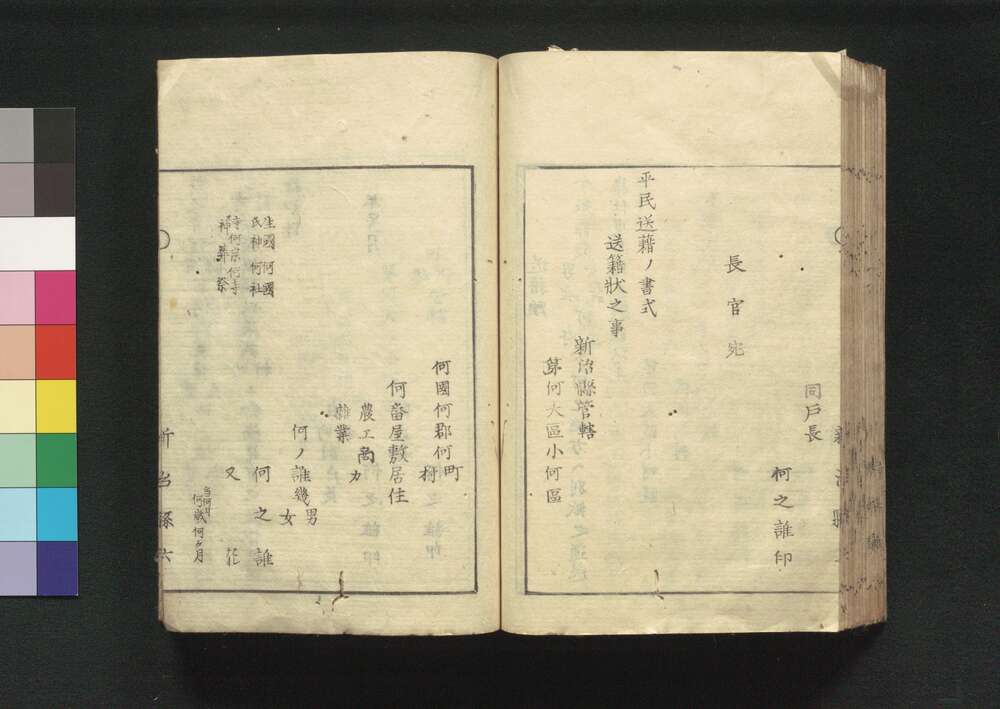 同戸長
何之誰印
長官宛
平民送籍ノ書式
送籍狀之事
新治縣管轄
第何大區小何區
何國何郡何町
村
何畨屋敷居住
農工商カ
雜業
何ノ誰幾男
女
何之誰
生國何國
氏神何社
寺何宗何寺
神葬祭
又ハ
何歳何ヶ月
新治縣六